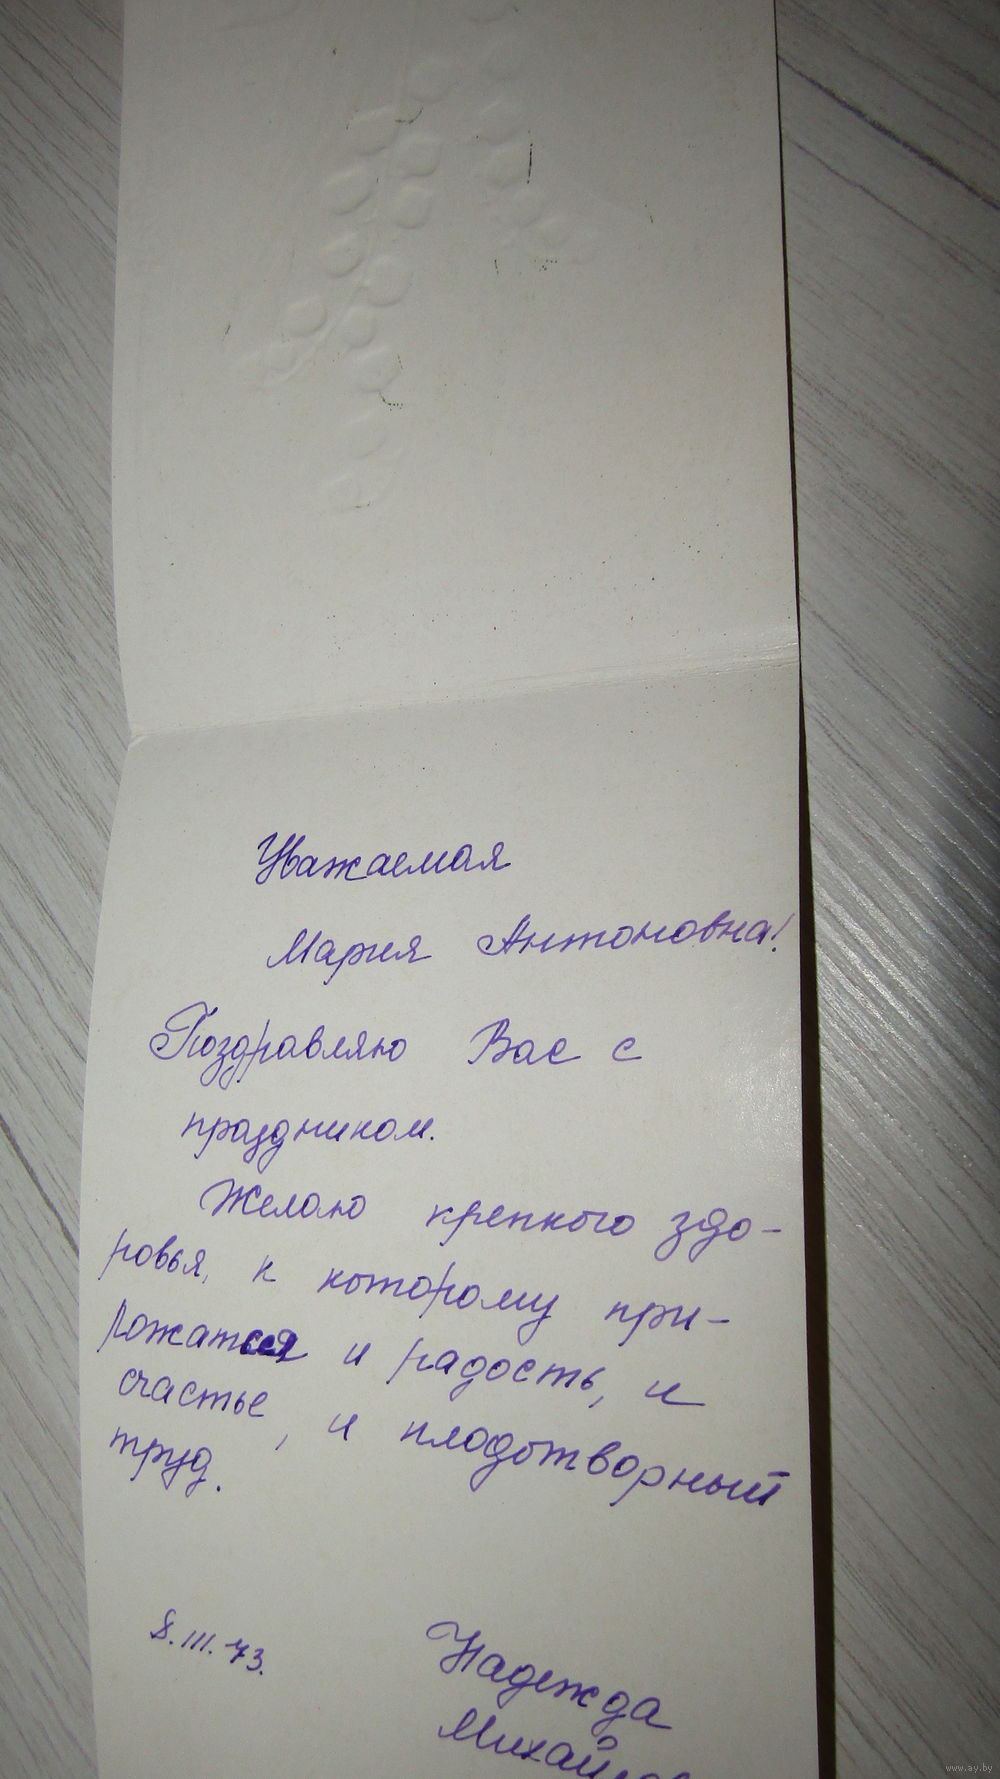 Уважаемая
Мария Антоновна!
Поздравляю Вас с
праздником.
Желаю крепкого здо-
ровья, к которому при-
ложатся и радость, и
счастье, и плодотворный
труд.
8.III.73.
Надежда
www.ay.by